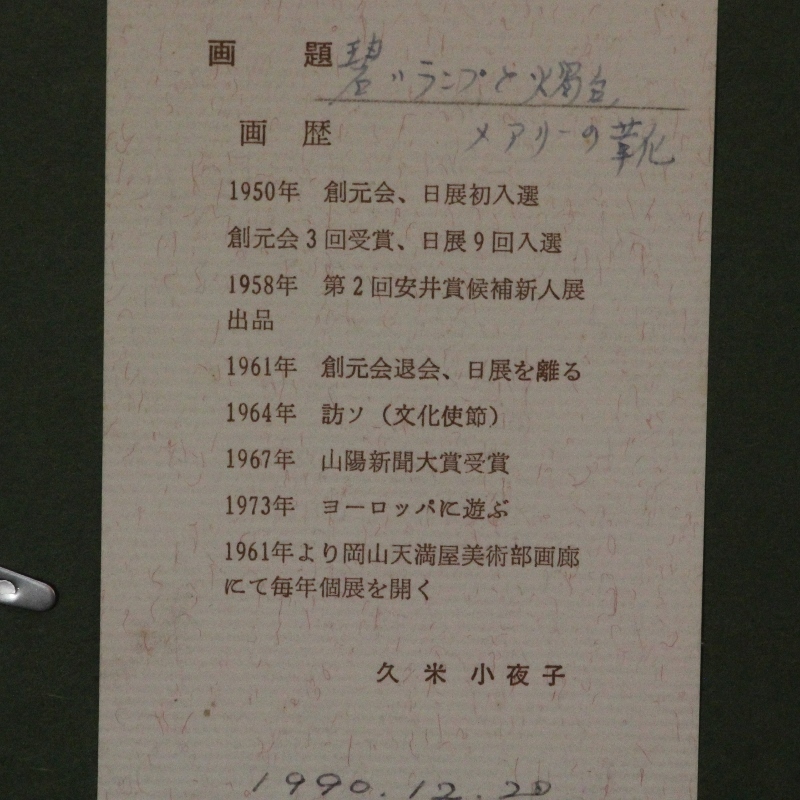 画 題 碧いランプと燭台、
画 歴 メアリーの靴
1950年 創元会、日展初入選
創元会3回受賞、日展9回入選
1958年 第2回安井賞候補新人展
出品
1961年 創元会退会、日展を離る
1964年 訪ソ（文化使節）
1967年 山陽新聞大賞受賞
1973年 ヨーロッパに遊ぶ
1961年より岡山天満屋美術部画廊
にて毎年個展を開く
久米 小夜子
1990.12.20